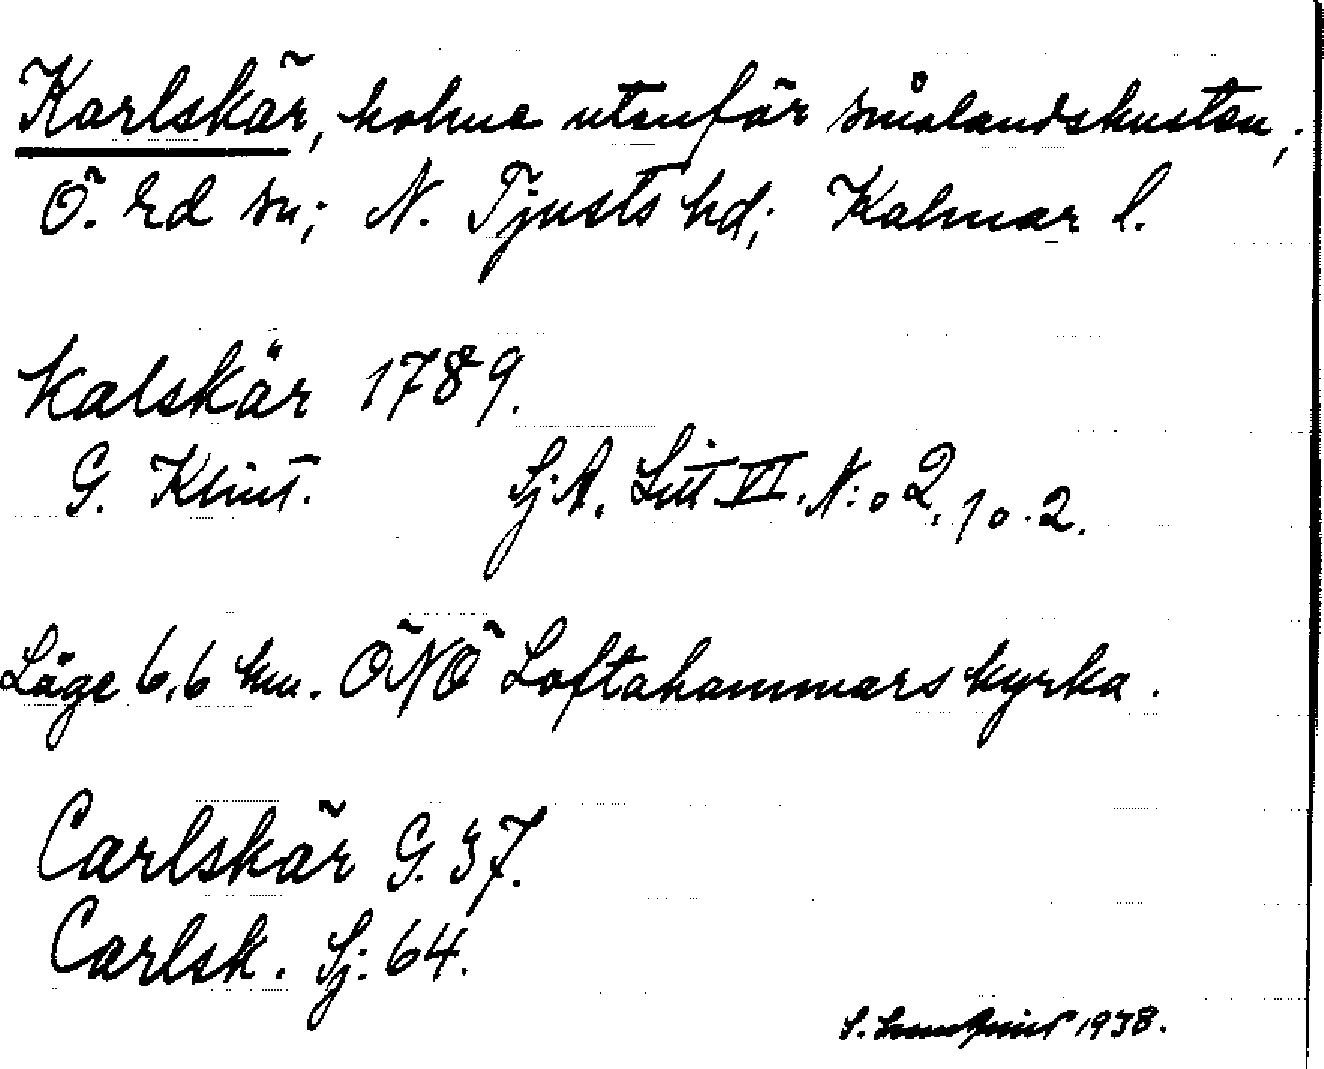 Karlskär, holme utanför smålandskusten,;
Ö. Ed sn; N. Tjusts hd; Kalmar l.
Kalskär 1789.
G. Klint. Sj.A. Litt VI. N:o 2, 10.2.
Läge 6,6 km. ÖNÖ Loftahammars kyrka.
Carlskär G. 37.
Carlsk. Sj: 64.
1938.